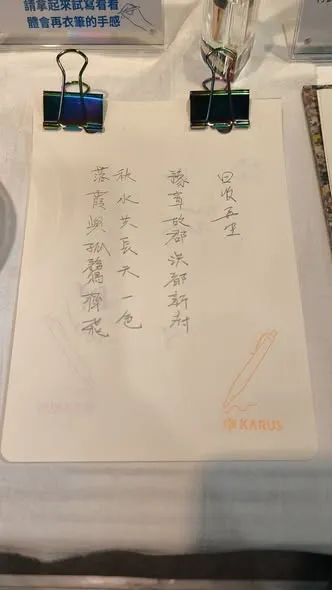 請拿起來試寫看看
體會再衣筆的手感
回收再生
豫章故郡洪都新府
秋水共長天一色
落霞與孤鶩齊飛
KARUS